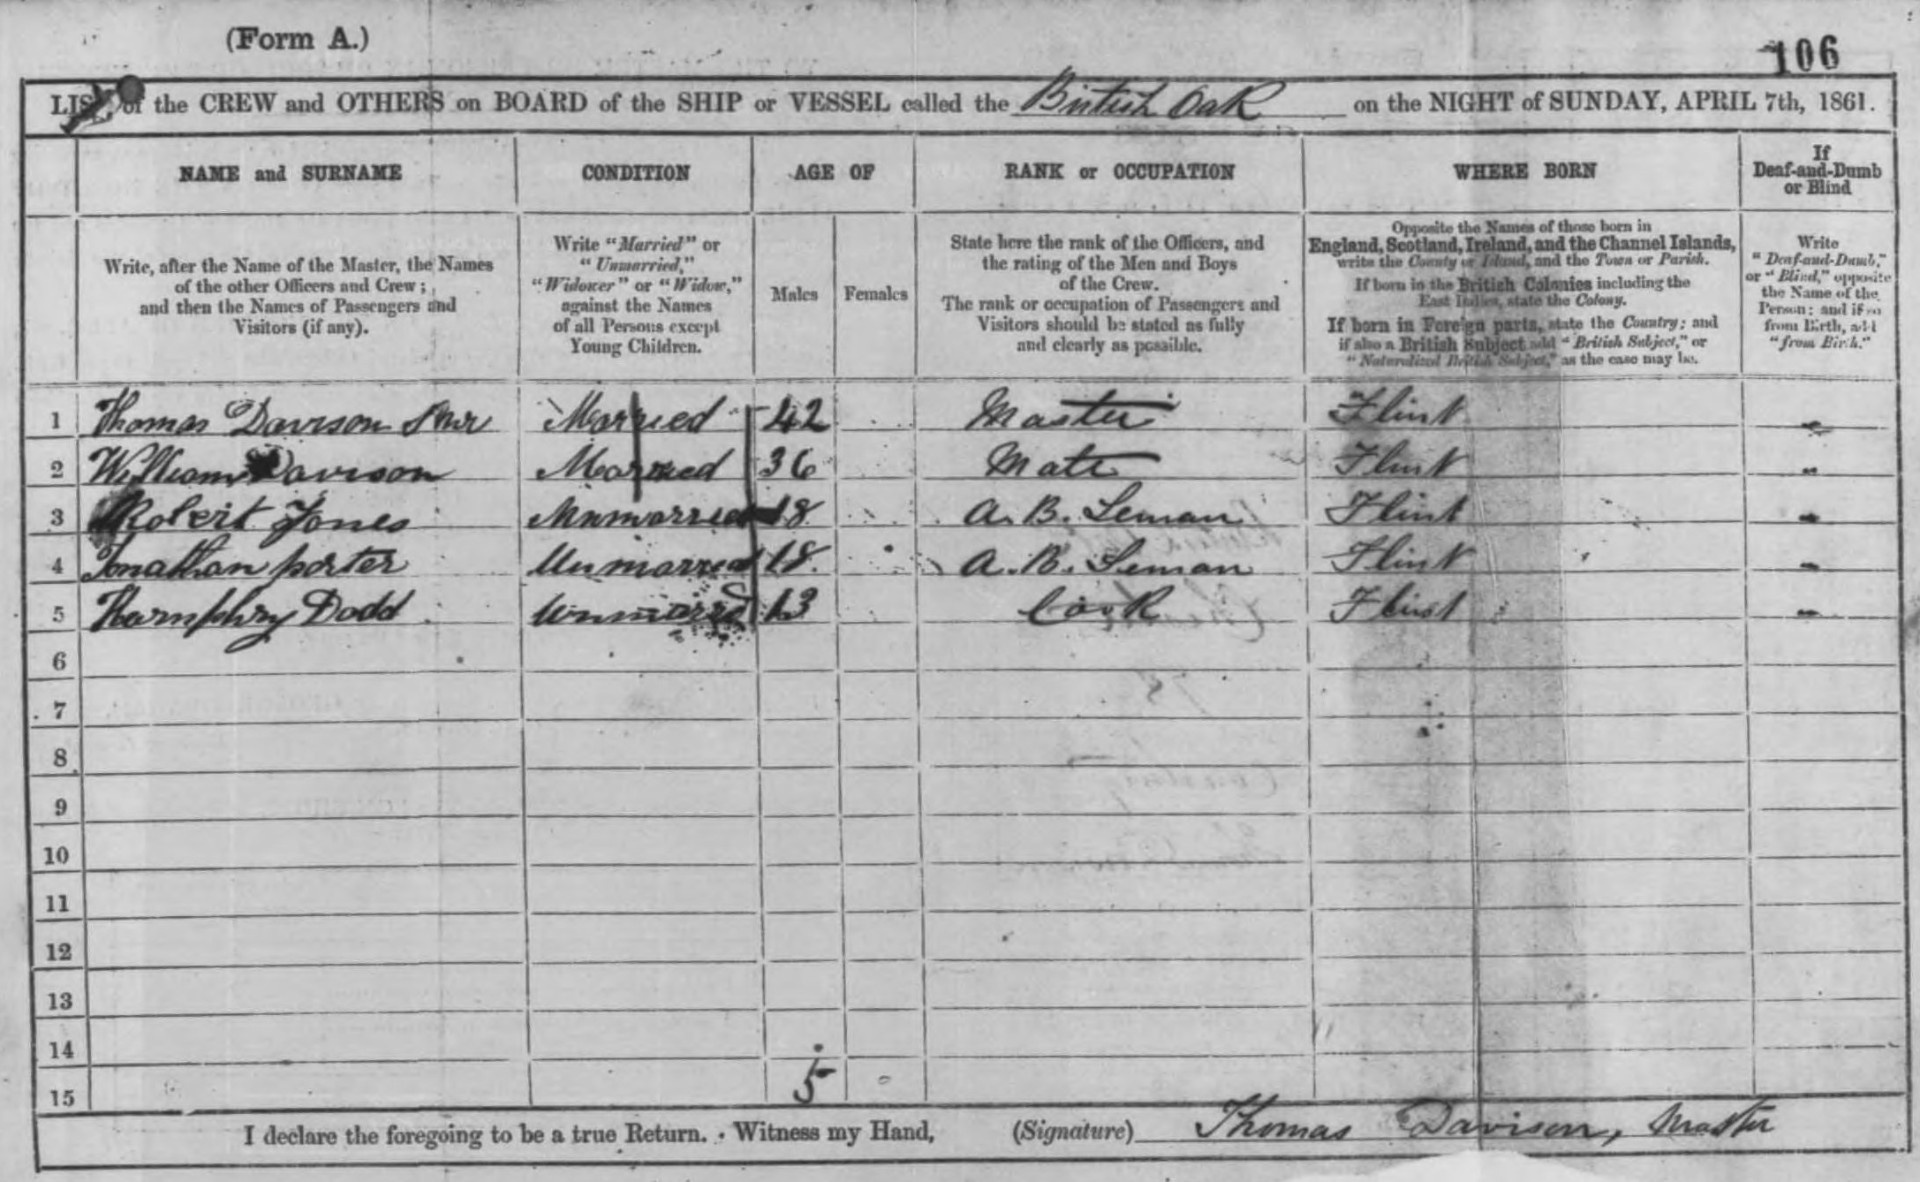 (Form A.)
106
LIST of the CREW and OTHERS on BOARD of the SHIP or VESSEL called the British Oak on the NIGHT of SUNDAY, APRIL 7th, 1861.
NAME and SURNAME
CONDITION
AGE OF
RANK or OCCUPATION
WHERE BORN
If
Deaf-and-Dumb
or Blind
Write, after the Name of the Master, the Names
of the other Officers and Crew;
and then the Names of Passengers and
Visitors (if any).
Write "Married" or
"Unmarried,"
"Widower" or "Widow,"
against the Names
of all Persons except
Young Children.
Males
Females
State here the rank of the Officers, and
the rating of the Men and Boys
of the Crew.
The rank or occupation of Passengers and
Visitors should be stated as fully
and clearly as possible.
Opposite the Names of those born in
England, Scotland, Ireland, and the Channel Islands,
write the County or Island, and the Town or Parish.
If born in the British Colonies including the
East Indies, state the Colony.
If born in Foreign parts, state the Country; and
if also a British Subject add "British Subject," or
"Naturalized British Subject," as the case may be.
Write
"Deaf-and-Dumb,"
or "Blind," opposite
the Name of the
Person; and if so
from Birth, add
"from Birth."
1 Thomas Davison Snr Married 42 Master Flint -
2 William Davison Married 36 Mate Flint -
3 Robert Jones Unmarried 18 A. B. Seman Flint -
4 Jonathan porter Unmarried 18. A. B. Seman Flint -
5 Harmphry Dodd Unmarred 13 Cook Flint -
6
7
8
9
10
11
12
13
14
15 5
I declare the foregoing to be a true Return. Witness my Hand, (Signature) Thomas Davison, Master